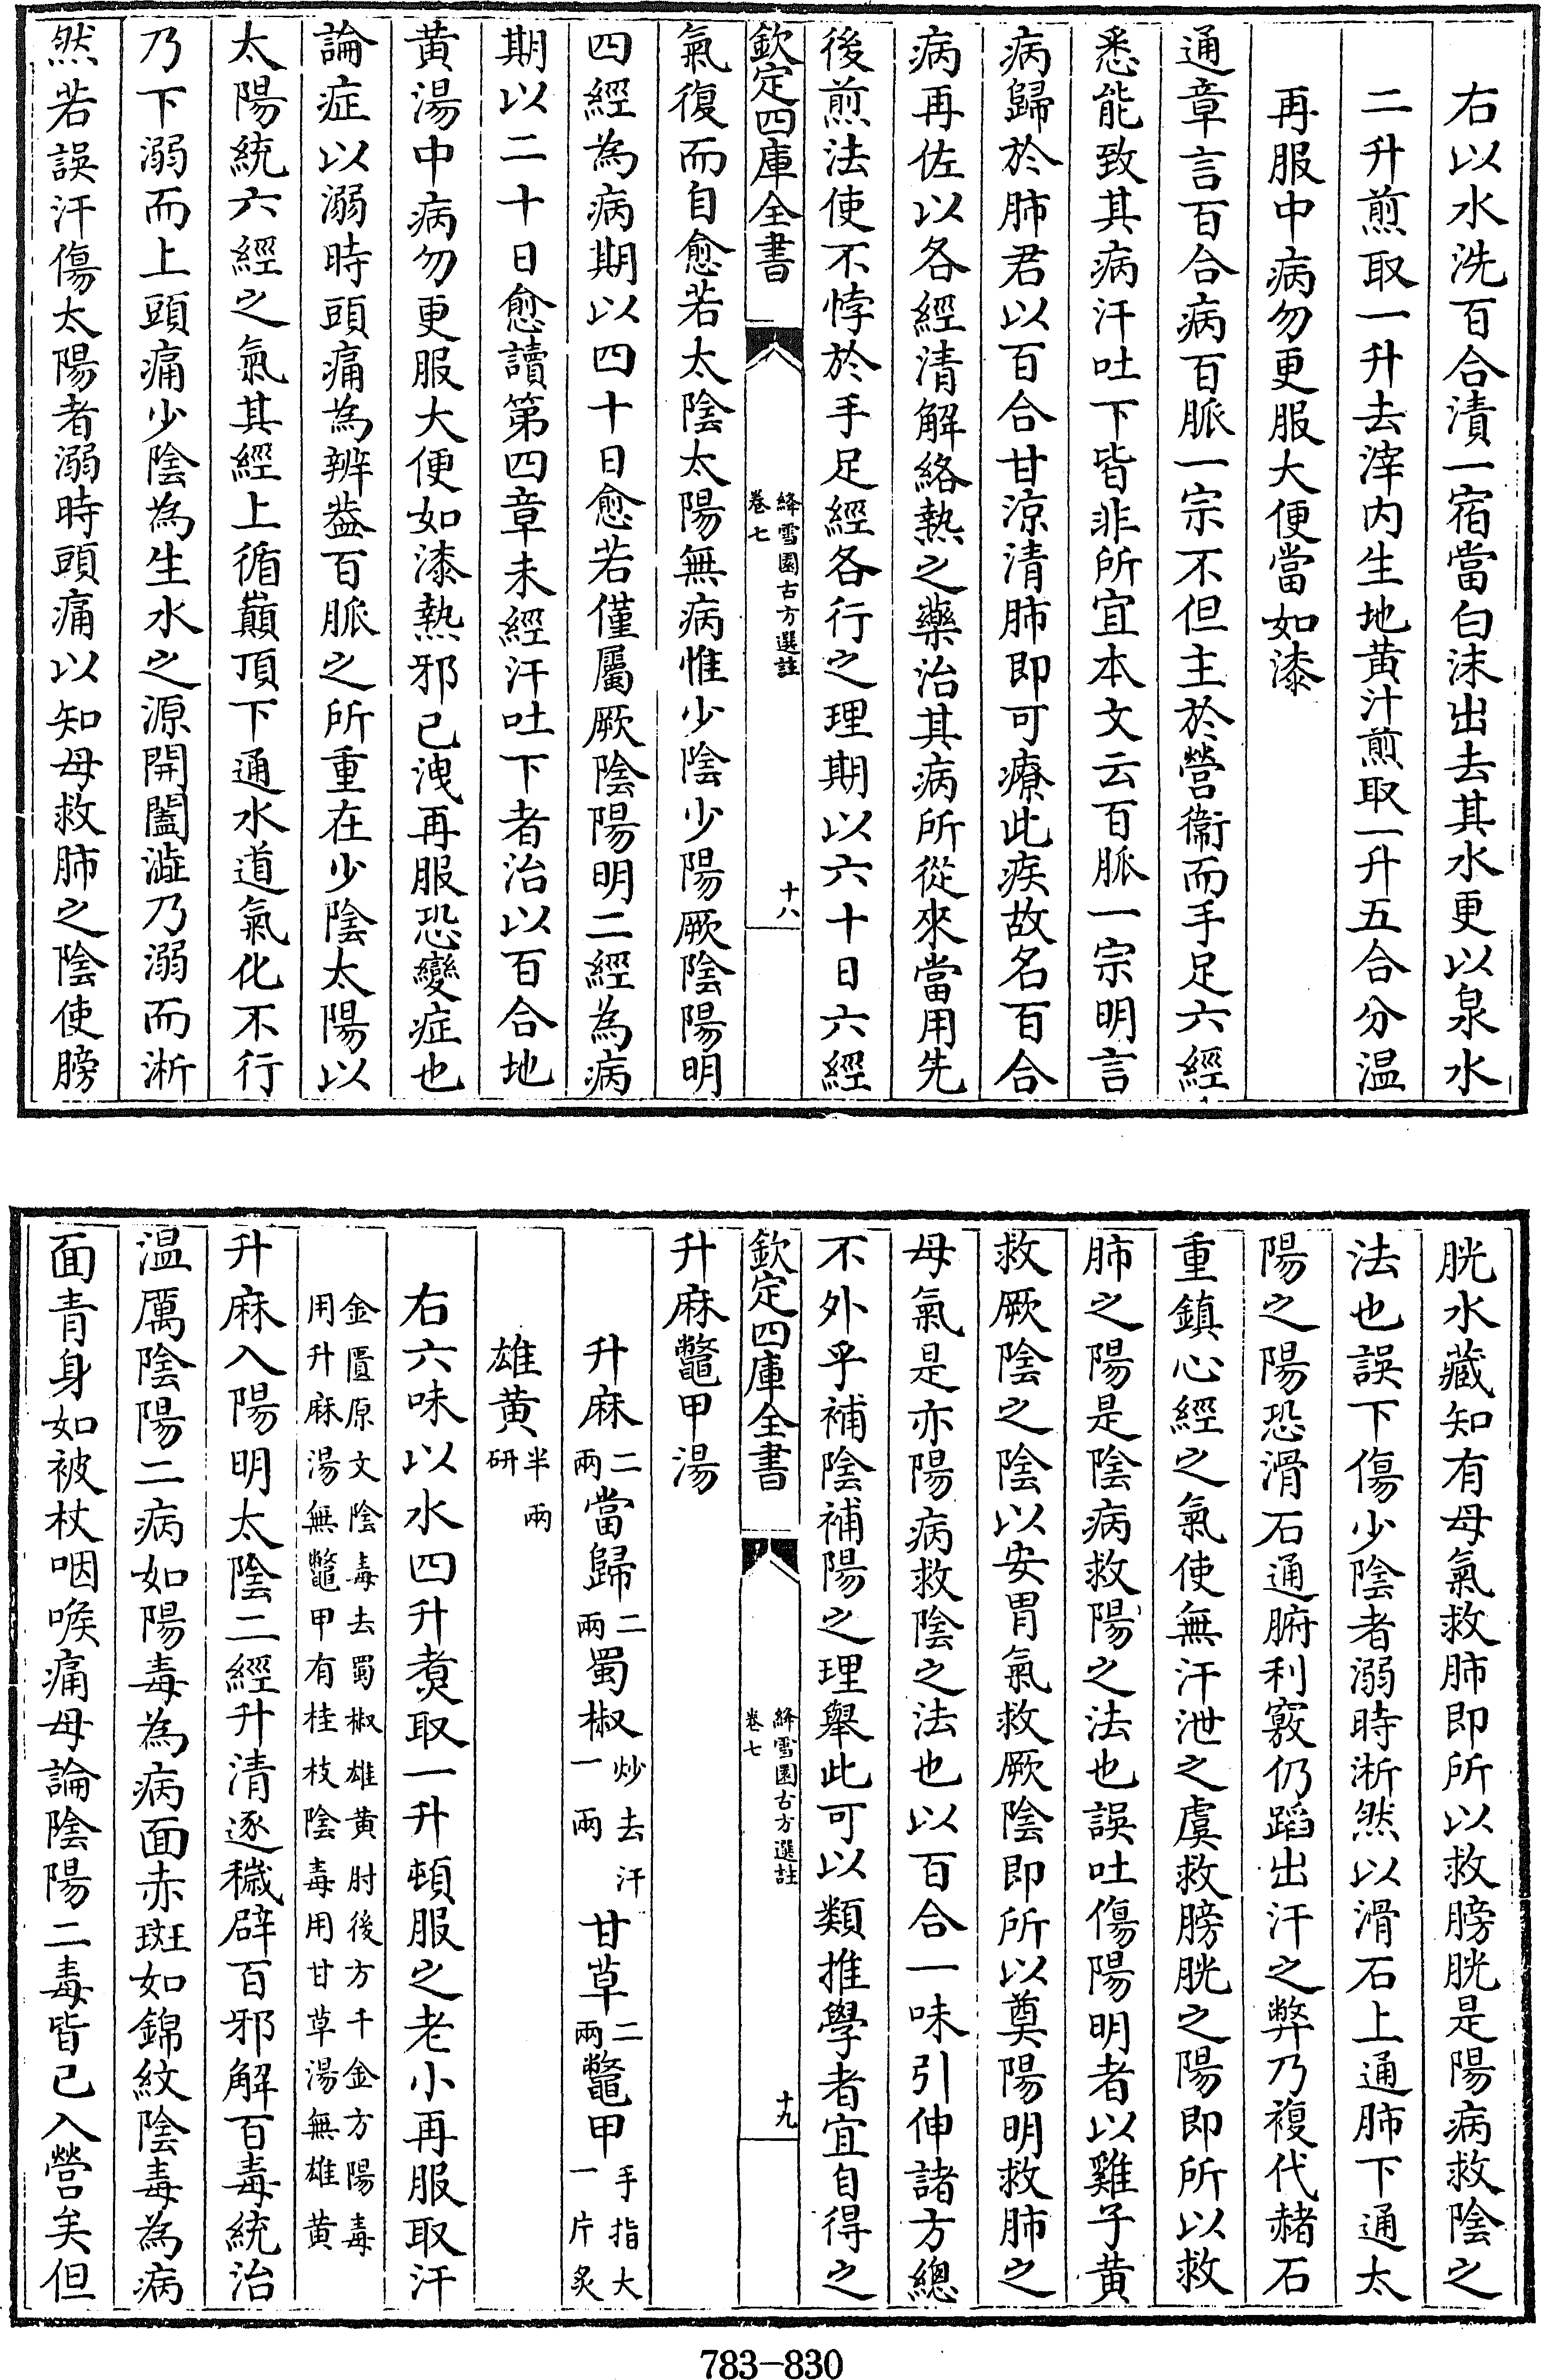 右以水洗百合漬一宿當白沫出去其水更以泉水
二升煎取一升去滓内生地黄汁煎取一升五合分温
再服中病勿更服大便當如漆
通章言百合病百脈一宗不但主於營衞而手足六經
悉能致其病汗吐下皆非所宜本文云百脈一宗明言
病歸於肺君以百合甘涼清肺即可療此疾故名百合
病再佐以各經清解絡熱之藥治其病所從來當用先
後煎法使不悖於手足經各行之理期以六十日六經
欽定四庫全書
絳雪園古方選註
卷七
十八
氣復而自愈若太陰太陽無病惟少陰少陽厥陰陽明
四經為病期以四十日愈若僅屬厥陰陽明二經為病
期以二十日愈讀第四章未經汗吐下者治以百合地
黄湯中病勿更服大便如漆熱邪已洩再服恐變症也
論症以溺時頭痛為辨葢百脈之所重在少陰太陽以
太陽統六經之氣其經上循巔頂下通水道氣化不行
乃下溺而上頭痛少陰為生水之源開闔澁乃溺而淅
然若誤汗傷太陽者溺時頭痛以知母救肺之陰使膀
胱水藏知有母氣救肺即所以救膀胱是陽病救陰之
法也誤下傷少陰者溺時淅然以滑石上通肺下通太
陽之陽恐滑石通腑利竅仍蹈出汗之弊乃複代赭石
重鎮心經之氣使無汗泄之虞救膀胱之陽即所以救
肺之陽是陰病救陽之法也誤吐傷陽明者以雞子黄
救厥陰之陰以安胃氣救厥陰即所以奠陽明救肺之
母氣是亦陽病救陰之法也以百合一味引伸諸方總
不外乎補陰補陽之理舉此可以類推學者宜自得之
欽定四庫全書
絳雪園古方選註
卷七
十九
升麻鼈甲湯
升麻二兩當歸二兩蜀椒炒去汗一兩甘草二兩鼈甲手指大一片炙
雄黄半兩研
右六味以水四升煑取一升頓服之老小再服取汗
金匱原文陰毒去蜀椒雄黄肘後方千金方陽毒
用升麻湯無鼈甲有桂枝陰毒用甘草湯無雄黄
升麻入陽明太陰二經升清逐穢辟百邪解百毒統治
温厲陰陽二病如陽毒為病面赤斑如錦紋陰毒為病
面青身如被杖咽喉痛毋論陰陽二毒皆已入營矣但
783-830